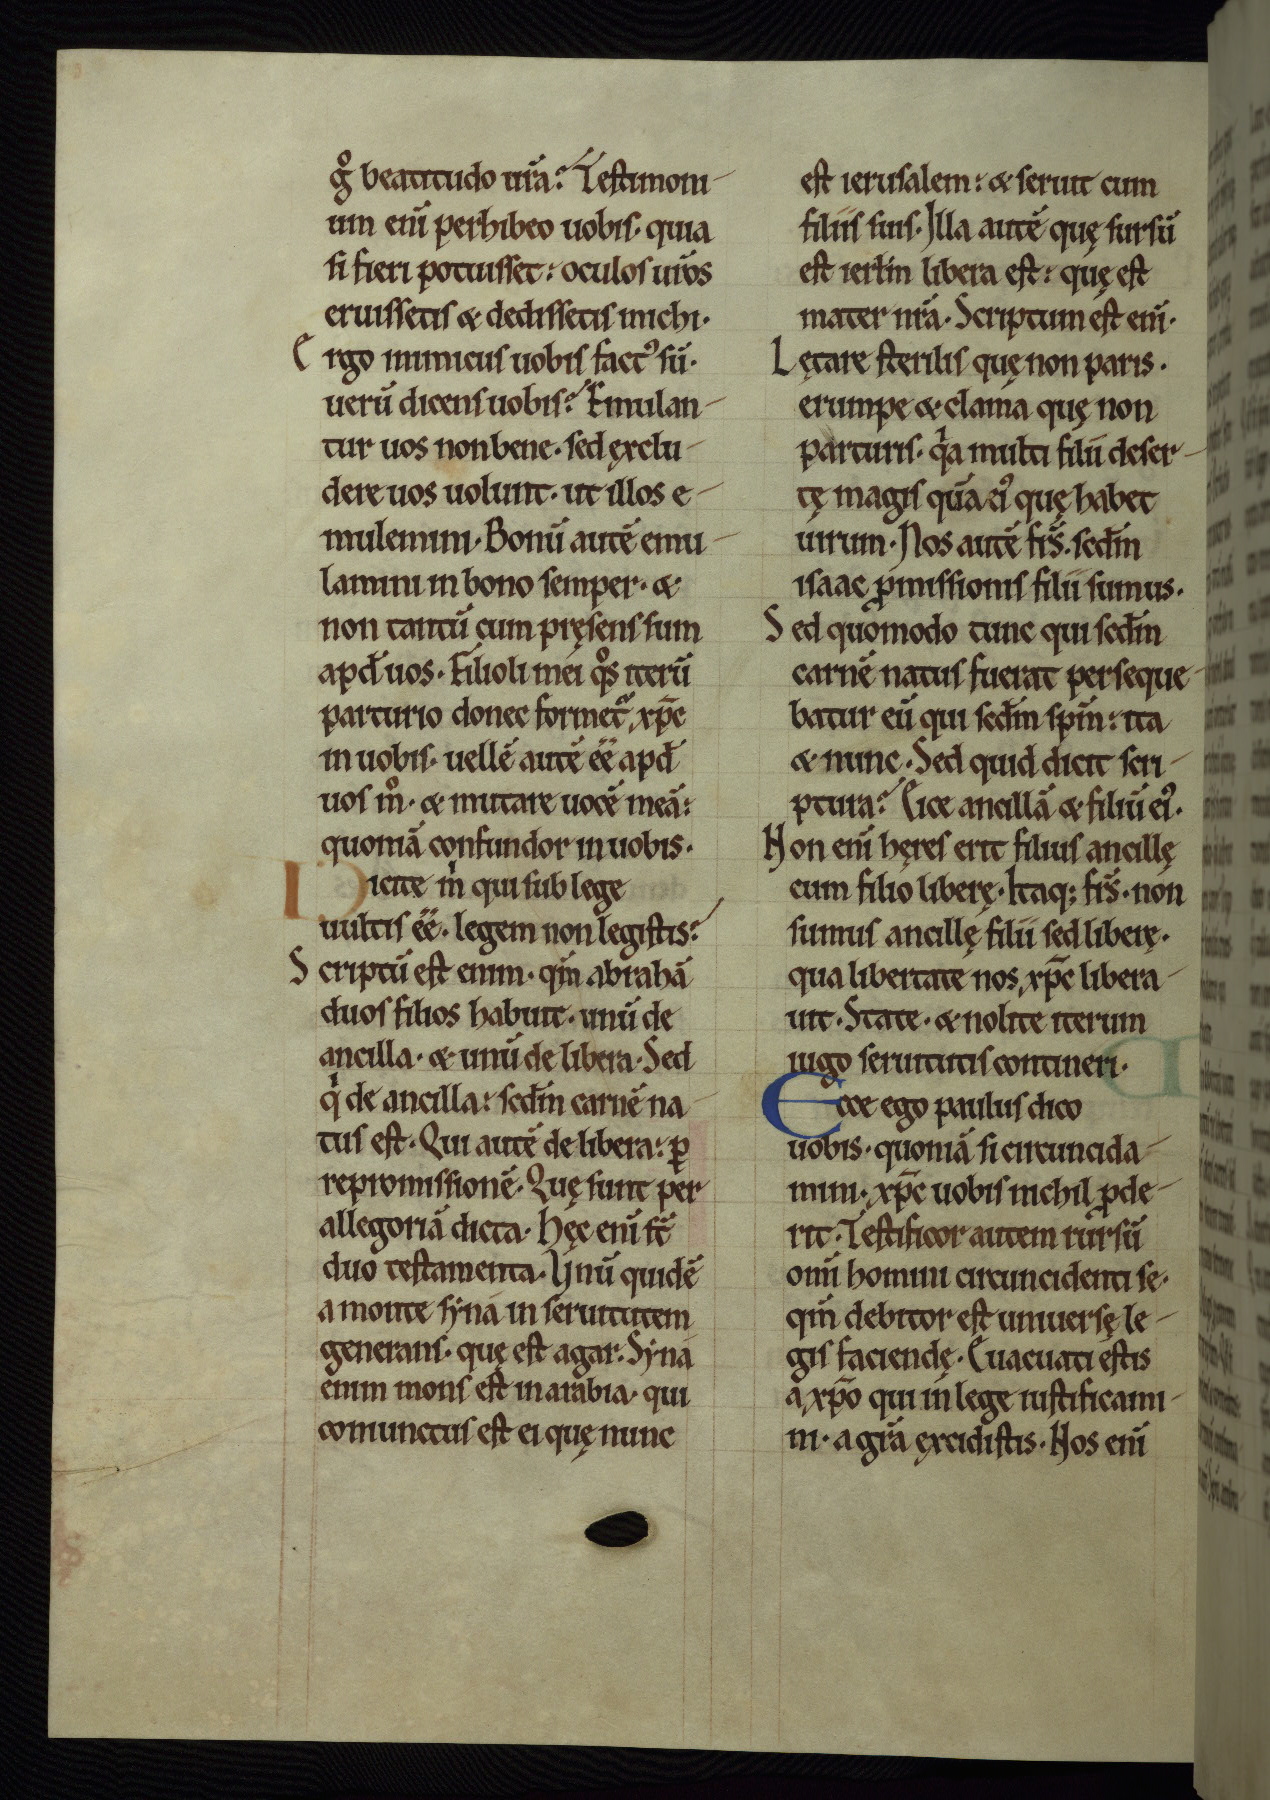 gͦ beatitudo ur̄a? Testimoni
um enī perhibeo uobis· quia
si fieri potuisset: oculos ur̄os
eruissetis & dedissetis michi·
Ergo inimicus uobis fact᷒ sū·
uerū dicens uobis? Emulan
tur uos non bene· sed exclu
dere uos uolunt· ut illos e
mulemini· Bonū autē emu
lamini in bono semper· &
non tantū cum pręsens sum
apđ uos· Filioli mei qͦs iterū
parturio donec formet᷒ xp̄c
in uobis· uellē autē ēē apđ
uos mͦ· & mutare uocē meā:
quoniā confundor in uobis·
Dicite mͥ qui sub lege
uultis ēē· legem non legistis?
Scriptū est enim· qm̄ abrahā
duos filios habuit· unū de
ancilla· & unū de libera· Sed
qͥ de ancilla: sedm̄ carnē na
tus est· Qui autē de libera: ꝑ
repromissionē· Quę sunt per
allegoriā dicta· Hęc enī st̄
duo testamenta· Unū quidē
a monte syna in seruitutem
generans· quę est agar: Syna
enim mons est in arabia· qui
coniunctus est ei quę nunc
est ierusalem: & seruit cum
filiis suis· Illa autē quę sursū
est ierłm libera est: quę est
mater nr̄a· Scriptum est enī·
Lętare sterilis quę non paris·
erumpe & clama quę non
parturis· qͥa multi filii deser
tę magis quā ei᷒ quę habet
uirum· Nos autē fr̄s· sedm̄
isaac ꝓmissionis filii sumus·
Sed quomodo tunc qui sedm̄
carnē natus fuerat perseque
batur eū qui sedm̄ spm̄: ita
& nunc· Sed quid dicit scri
ptura? Eice ancillā & filiū ei᷒·
Non enī hęres erit filius ancillę
cum filio liberę· Itaq; fr̄s· non
sumus ancillę filii sed liberę·
qua libertate nos xp̄c libera
uit· State· & nolite iterum
iugo seruitutis contineri·
Ecce ego paulus dico
uobis· quoniā si circuncida
mini· xp̄c uobis nichil ꝓde
rit· Testificor autem rursū
omī homini circuncidenti se·
qm̄ debitor est uniuersę le
gis faciendę· Euacuati estis
a xp̄o qui in lege iustificami
ni· a gr̄a excidistis· Nos enī